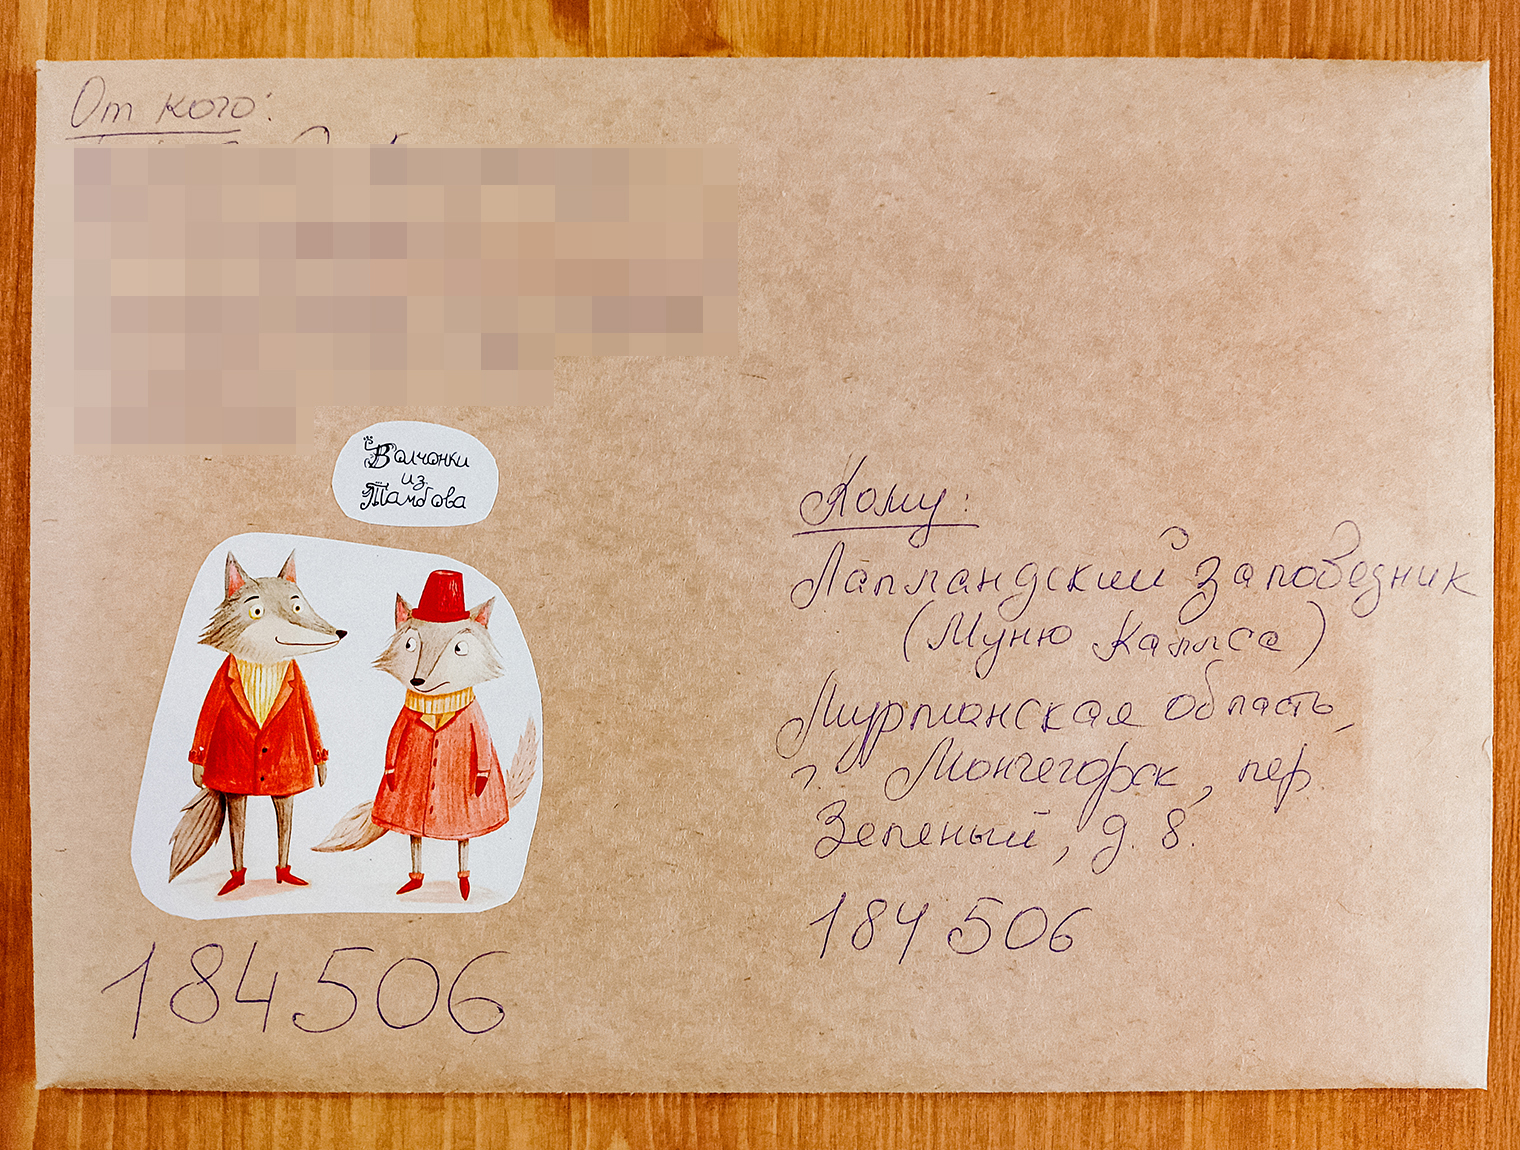 От кого:
Волчонки
из
Тамбова
Кому:
Лапландский заповедник
(Муню Каллса)
Мурманская область,
г. Мончегорск, пер.
Зеленый, д. 8.
184 506
184506